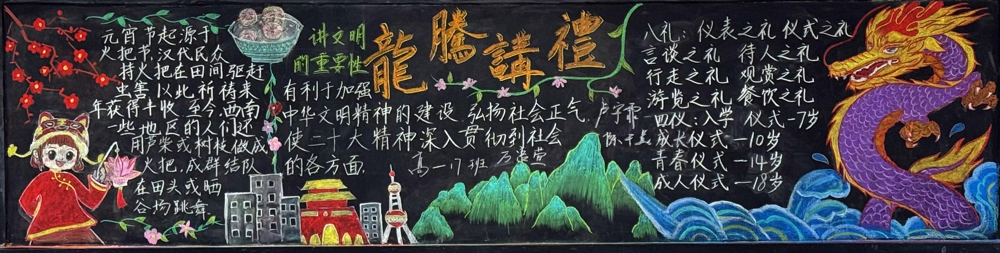 元宵节起源于
火把节,汉代民众
持火把在田间驱赶
虫害,以此祈祷来
年获得丰收,至今,西南
一些地区的人们还
用芦柴或树枝做成
火把,成群结队
在田头或晒
谷场跳舞
讲文明
的重要性
龍騰講禮
有利于加强
中华文明精神的建设,弘扬社会正气,
使二十大精神深入贯彻到社会
的各方面.
高一17班
八礼:仪表之礼 仪式之礼
言谈之礼 待人之礼
行走之礼 观赏之礼
游览之礼 餐饮之礼
四仪:入学仪式—7岁
成长仪式—10岁
青春仪式—14岁
成人仪式—18岁